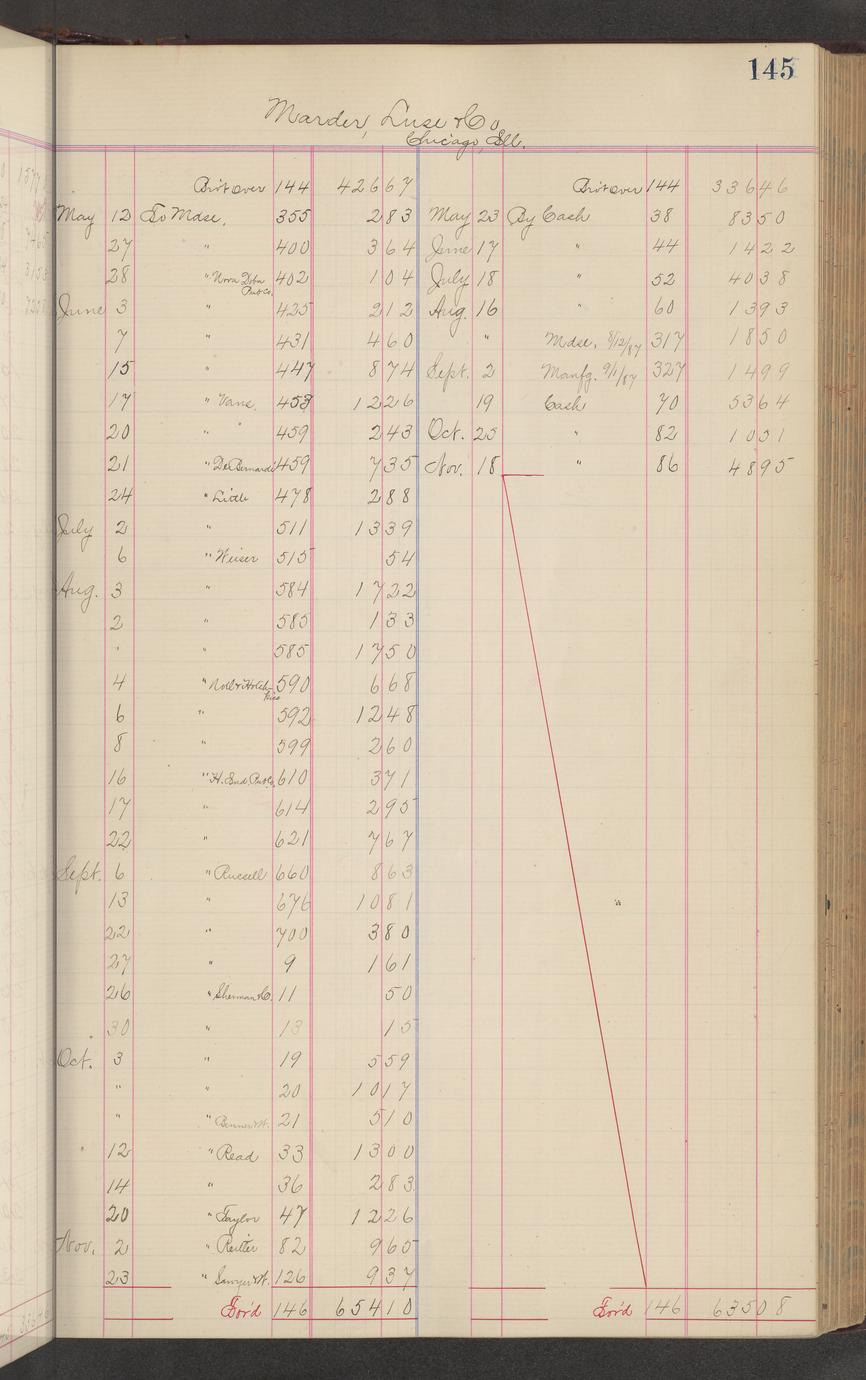 145
Marder, Luse & Co,
Chicago, Ill.
Bro't over 144 426 67 Bro't over 144 336 46
May 12 To Mdse. 355 2 83 May 23 By Cash 38 83 50
27 " 400 3 64 June 17 " 44 14 22
28 " Nora Pub Co. 402 1 04 July 18 " 52 40 38
June 3 " 425 2 12 Aug. 16 " 60 13 93
7 " 431 4 60 " Mdse. 8/12/87 317 18 50
15 " 447 8 74 Sept. 2 Manfg. 9/1/87 327 14 99
17 " Vans. 458 12 26 19 Cash 70 53 64
20 " " 459 2 43 Oct. 25 " 82 10 51
21 " De Bernardi 459 7 35 Nov. 18 " 86 48 95
24 " 478 2 88
July 2 " 511 13 39
6 " Weiser 515 54
Aug. 3 " 584 17 22
2 " 585 1 33
" " 585 17 50
4 " Noll & Hotchkiss 590 6 68
6 " 592 12 48
8 " 599 2 60
16 " H. Ind. Pub Co. 610 3 71
17 " 614 2 95
22 " 621 7 67
Sept. 6 " Russell 660 8 63
13 " 676 10 81
22 " 700 3 80
27 " 9 1 61
26 " Sherman & Co. 11 50
30 " 13 15
Oct. 3 " 19 5 59
" " 20 10 17
" " 21 5 10
12 " Read 33 13 00
14 " 36 2 83
20 " Taylor 47 12 26
Nov. 2 " Reuter 82 9 65
23 " Sawyer & W. 126 9 37
For'd 146 654 10 For'd 146 635 08